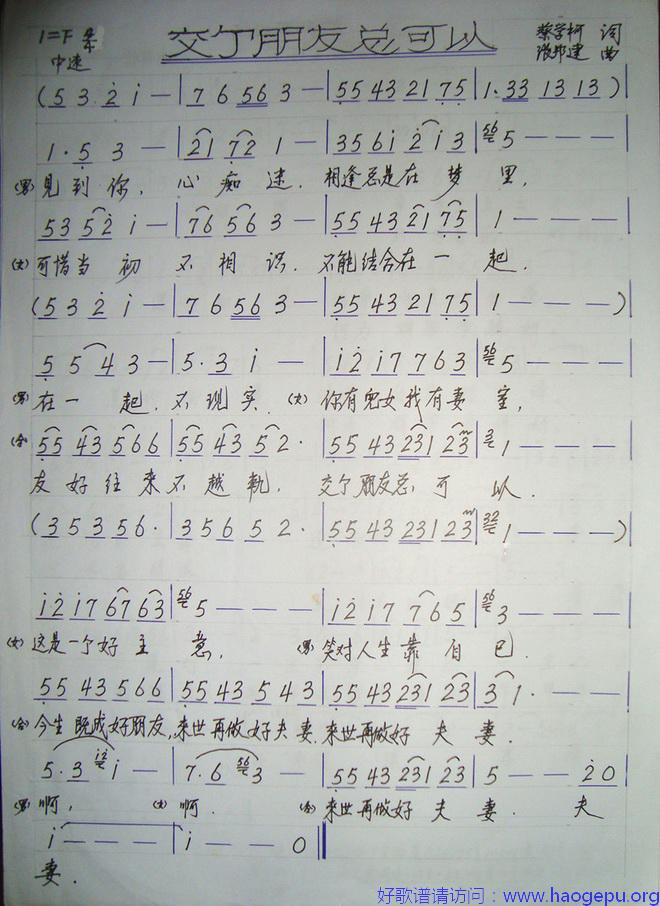 1=F 4/4 交个朋友总可以 蔡学柯 词
中速 张邦建 曲
(5 3 2 i — | 7 6 56 3 — | 55 43 21 75 | 1·33 13 13)|
1·5 3 — | 21 72 1 — | 35 6i 2i3 | 5 — — — |
(男)见到你,心痴迷,相逢总是在梦里,
53 52 i — | 76 56 3 — | 55 43 21 75 | 1 — — — |
(女)可惜当初不相识,不能结合在一起.
(53 2 i — | 7 6 56 3 — | 55 43 21 75 | 1 — — — )|
5 5 4 3 — | 5·3 i — | i2 i7 7 63 | 5 — — — |
(男)在一起.不现实.(女)你有儿女我有妻室,
(合)55 43 566 | 55 43 52· | 55 43 231 23 | 1 — — — |
友好往来不越轨.交个朋友总可以.
(35 35 6· | 356 5 2· | 55 43 231 23 | 1 — — — )|
i2 i7 67 63 | 5 — — — | i2 i7 765 | 3 — — — |
(女)这是一个好主意,(男)笑对人生靠自己.
55 43 566 | 55 43 543 | 55 43 231 23 | 3 1· — — |
(合)今生既成好朋友,来世再做好夫妻.来世再做好夫妻.
5·3 i — | 7·6 3 — | 55 43 231 23 | 5 — — 20 |
(男)啊,(女)啊.(合)来世再做好夫妻.夫
i — — — | i — — 0 ‖
妻.
好歌谱请访问:www.haogepu.org